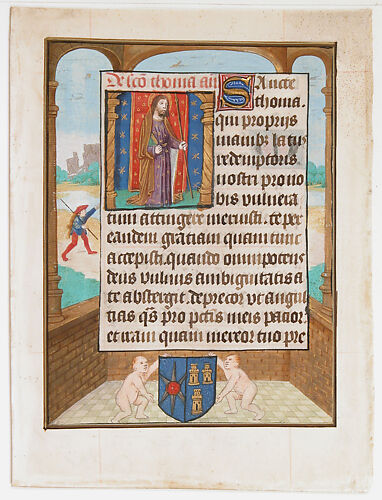 De sc̄o thoma ap̄
Sancte
thoma.
qui proprijs
manibꝰ latus
redemptoris
nostri pro no
bis vulnera
tum attingere meruisti. te per
eandem gratiam quam tunc
accepisti. quando omnipotens
deus vulnus ambiguitatis a
te abstergit. deprecor vt angus
tias qūs pro pctīs meis patior.
et iram quam mereor tuo pre